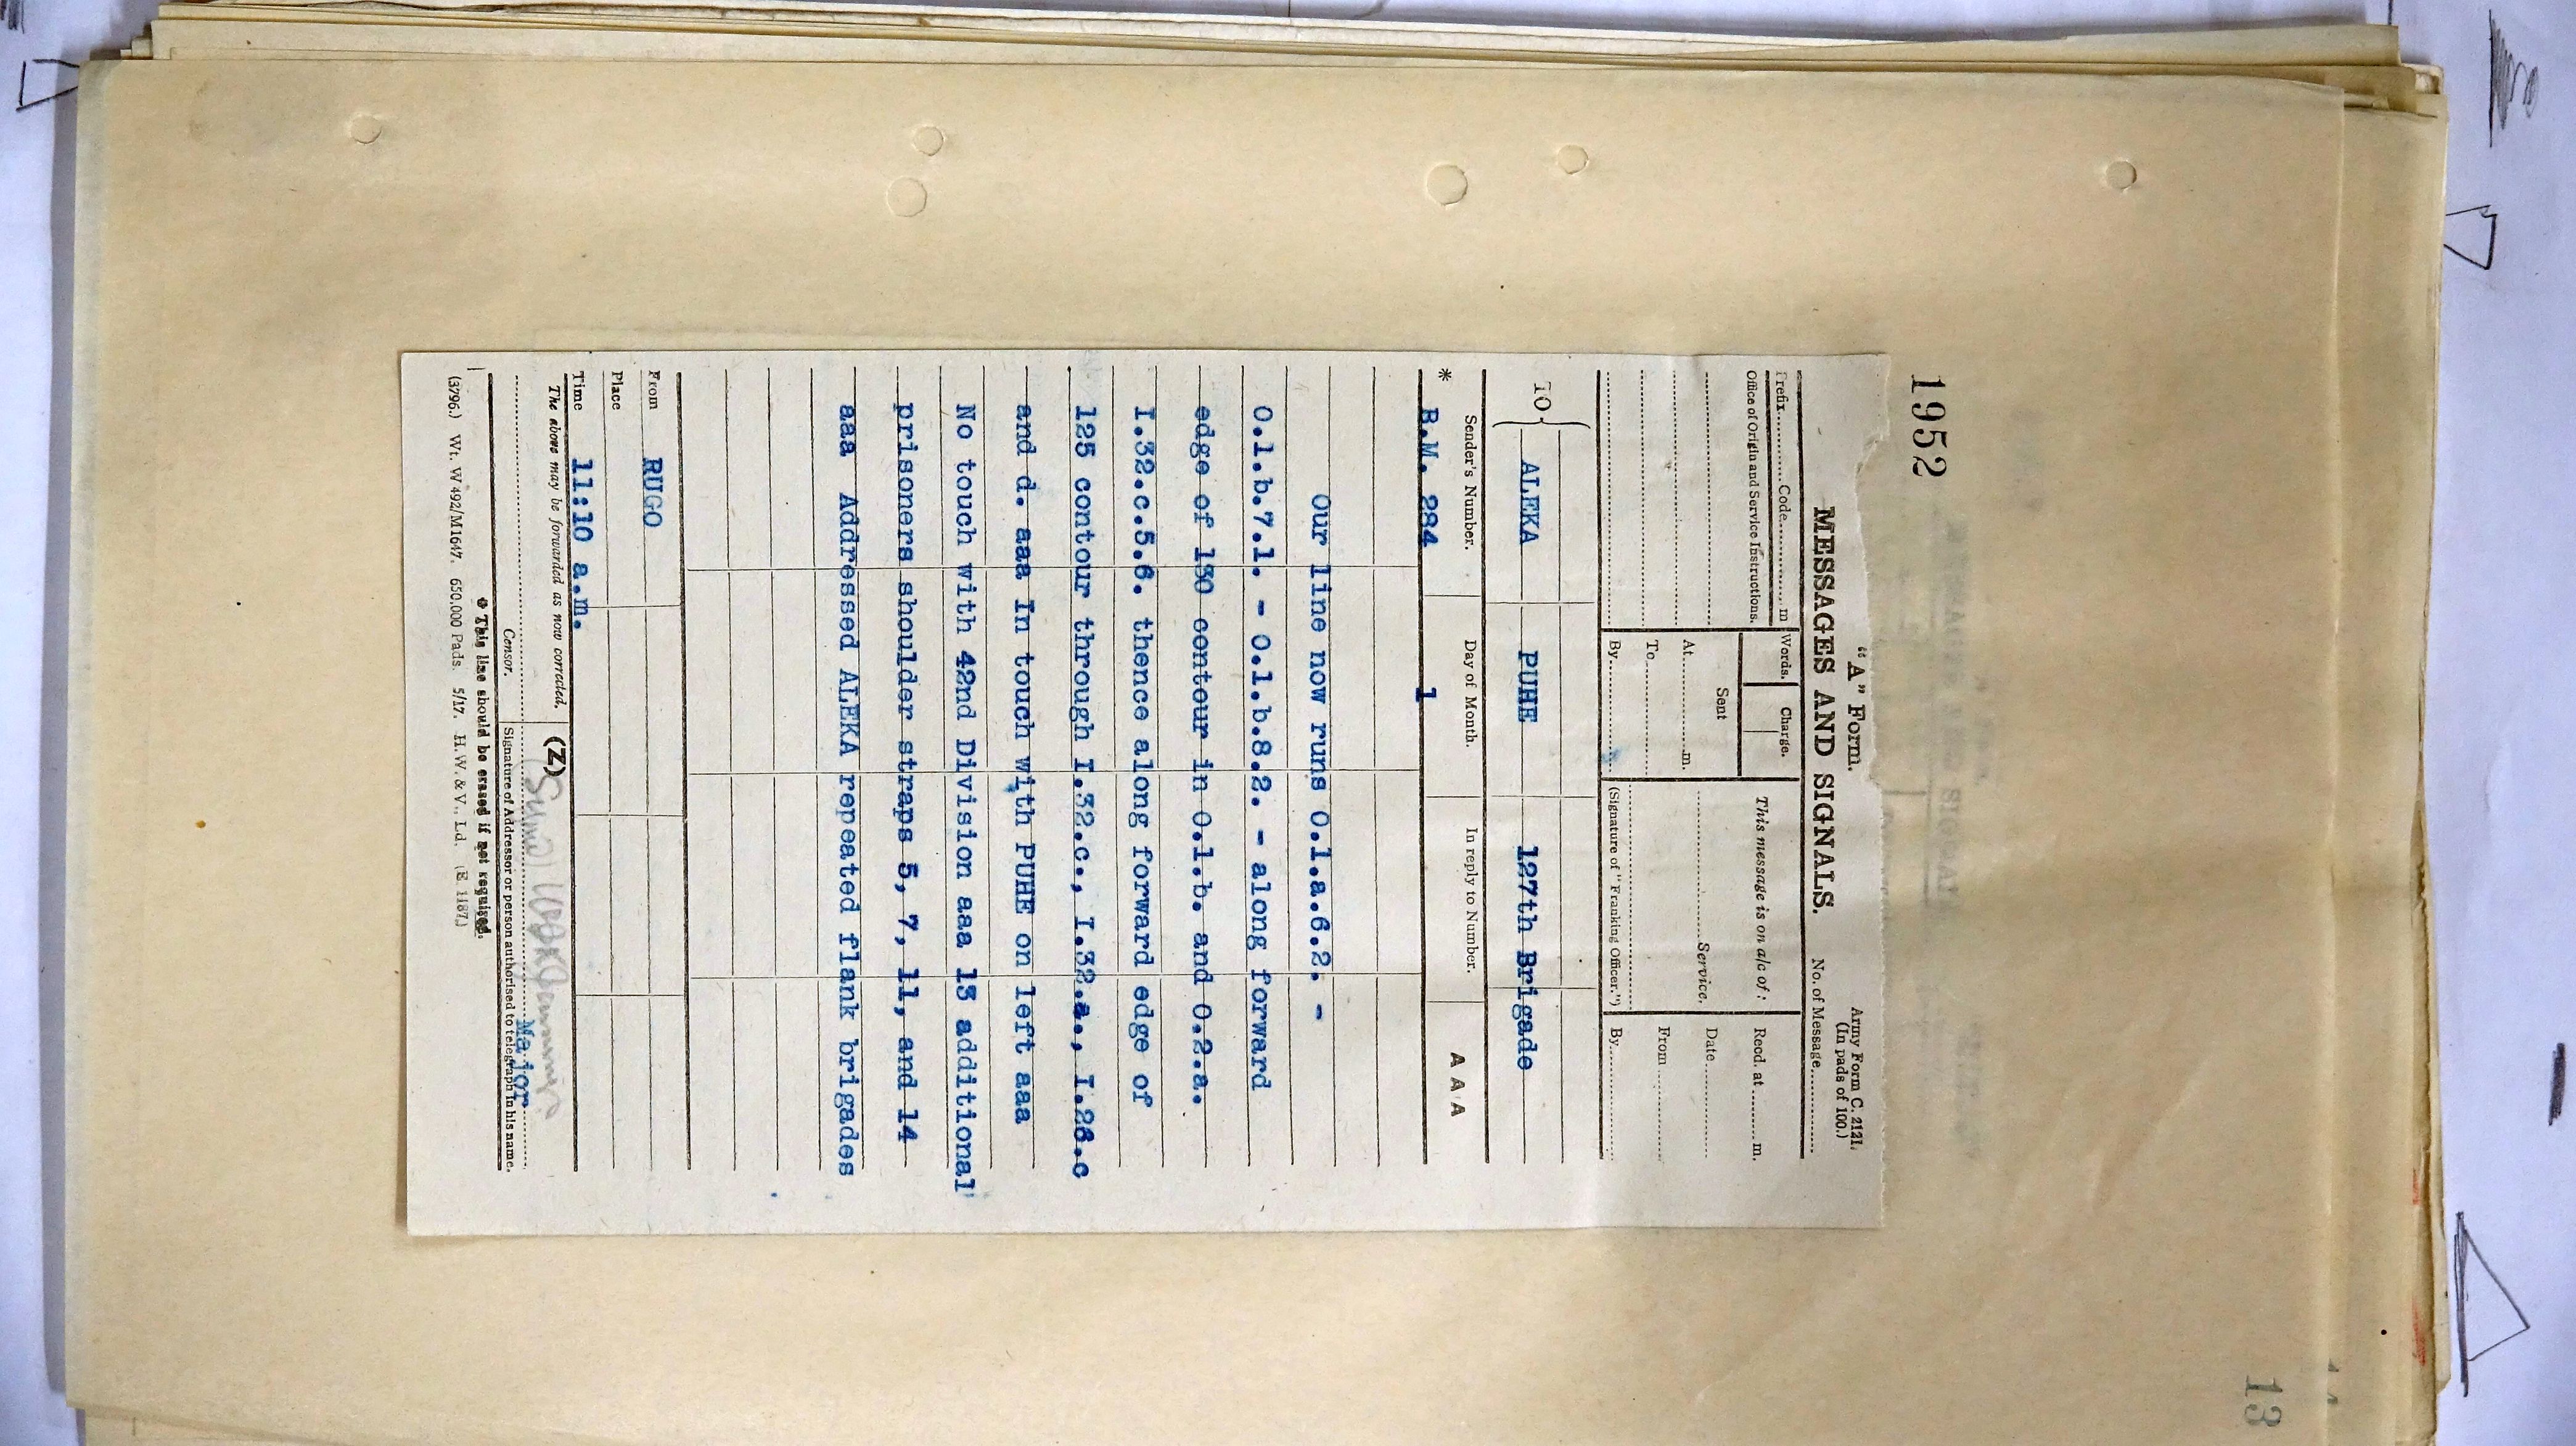 1952
"A" Form.
Army Form C. 2121.
(In pads of 100.)
MESSAGES AND SIGNALS.
No. of Message
Prefix Code m
Words. Charge.
This message is on a/c of :
Recd. at m.
Office of Origin and Service Instructions.
Sent
Service.
Date
At m.
From
To
By
(Signature of "Franking Officer.")
By
TO { ALEKA PUHE 127th Brigade
Sender's Number. Day of Month. In reply to Number. A A A
* B.M. 284 1
Our line now runs O.1.a.6.2. -
O.1.b.7.1. - O.1.b.8.2. - along forward
edge of 130 contour in O.1.b. and O.2.a.
I.32.c.5.6. thence along forward edge of
125 contour through I.32.c., I.32.a., I.26.c
and d. aaa In touch with PUHE on left aaa
No touch with 42nd Division aaa 13 additional
prisoners shoulder straps 5, 7, 11, and 14
aaa Addressed ALEKA repeated flank brigades
From RUGO
Place
Time 11:10 a.m.
The above may be forwarded as now corrected. (Z)
Major
Censor. Signature of Addressor or person authorised to telegraph in his name.
* This line should be erased if not required.
(3796.) Wt. W 492/M1647. 650,000 Pads. 5/17. H.W. & V., Ld. (E. 1187.)
13